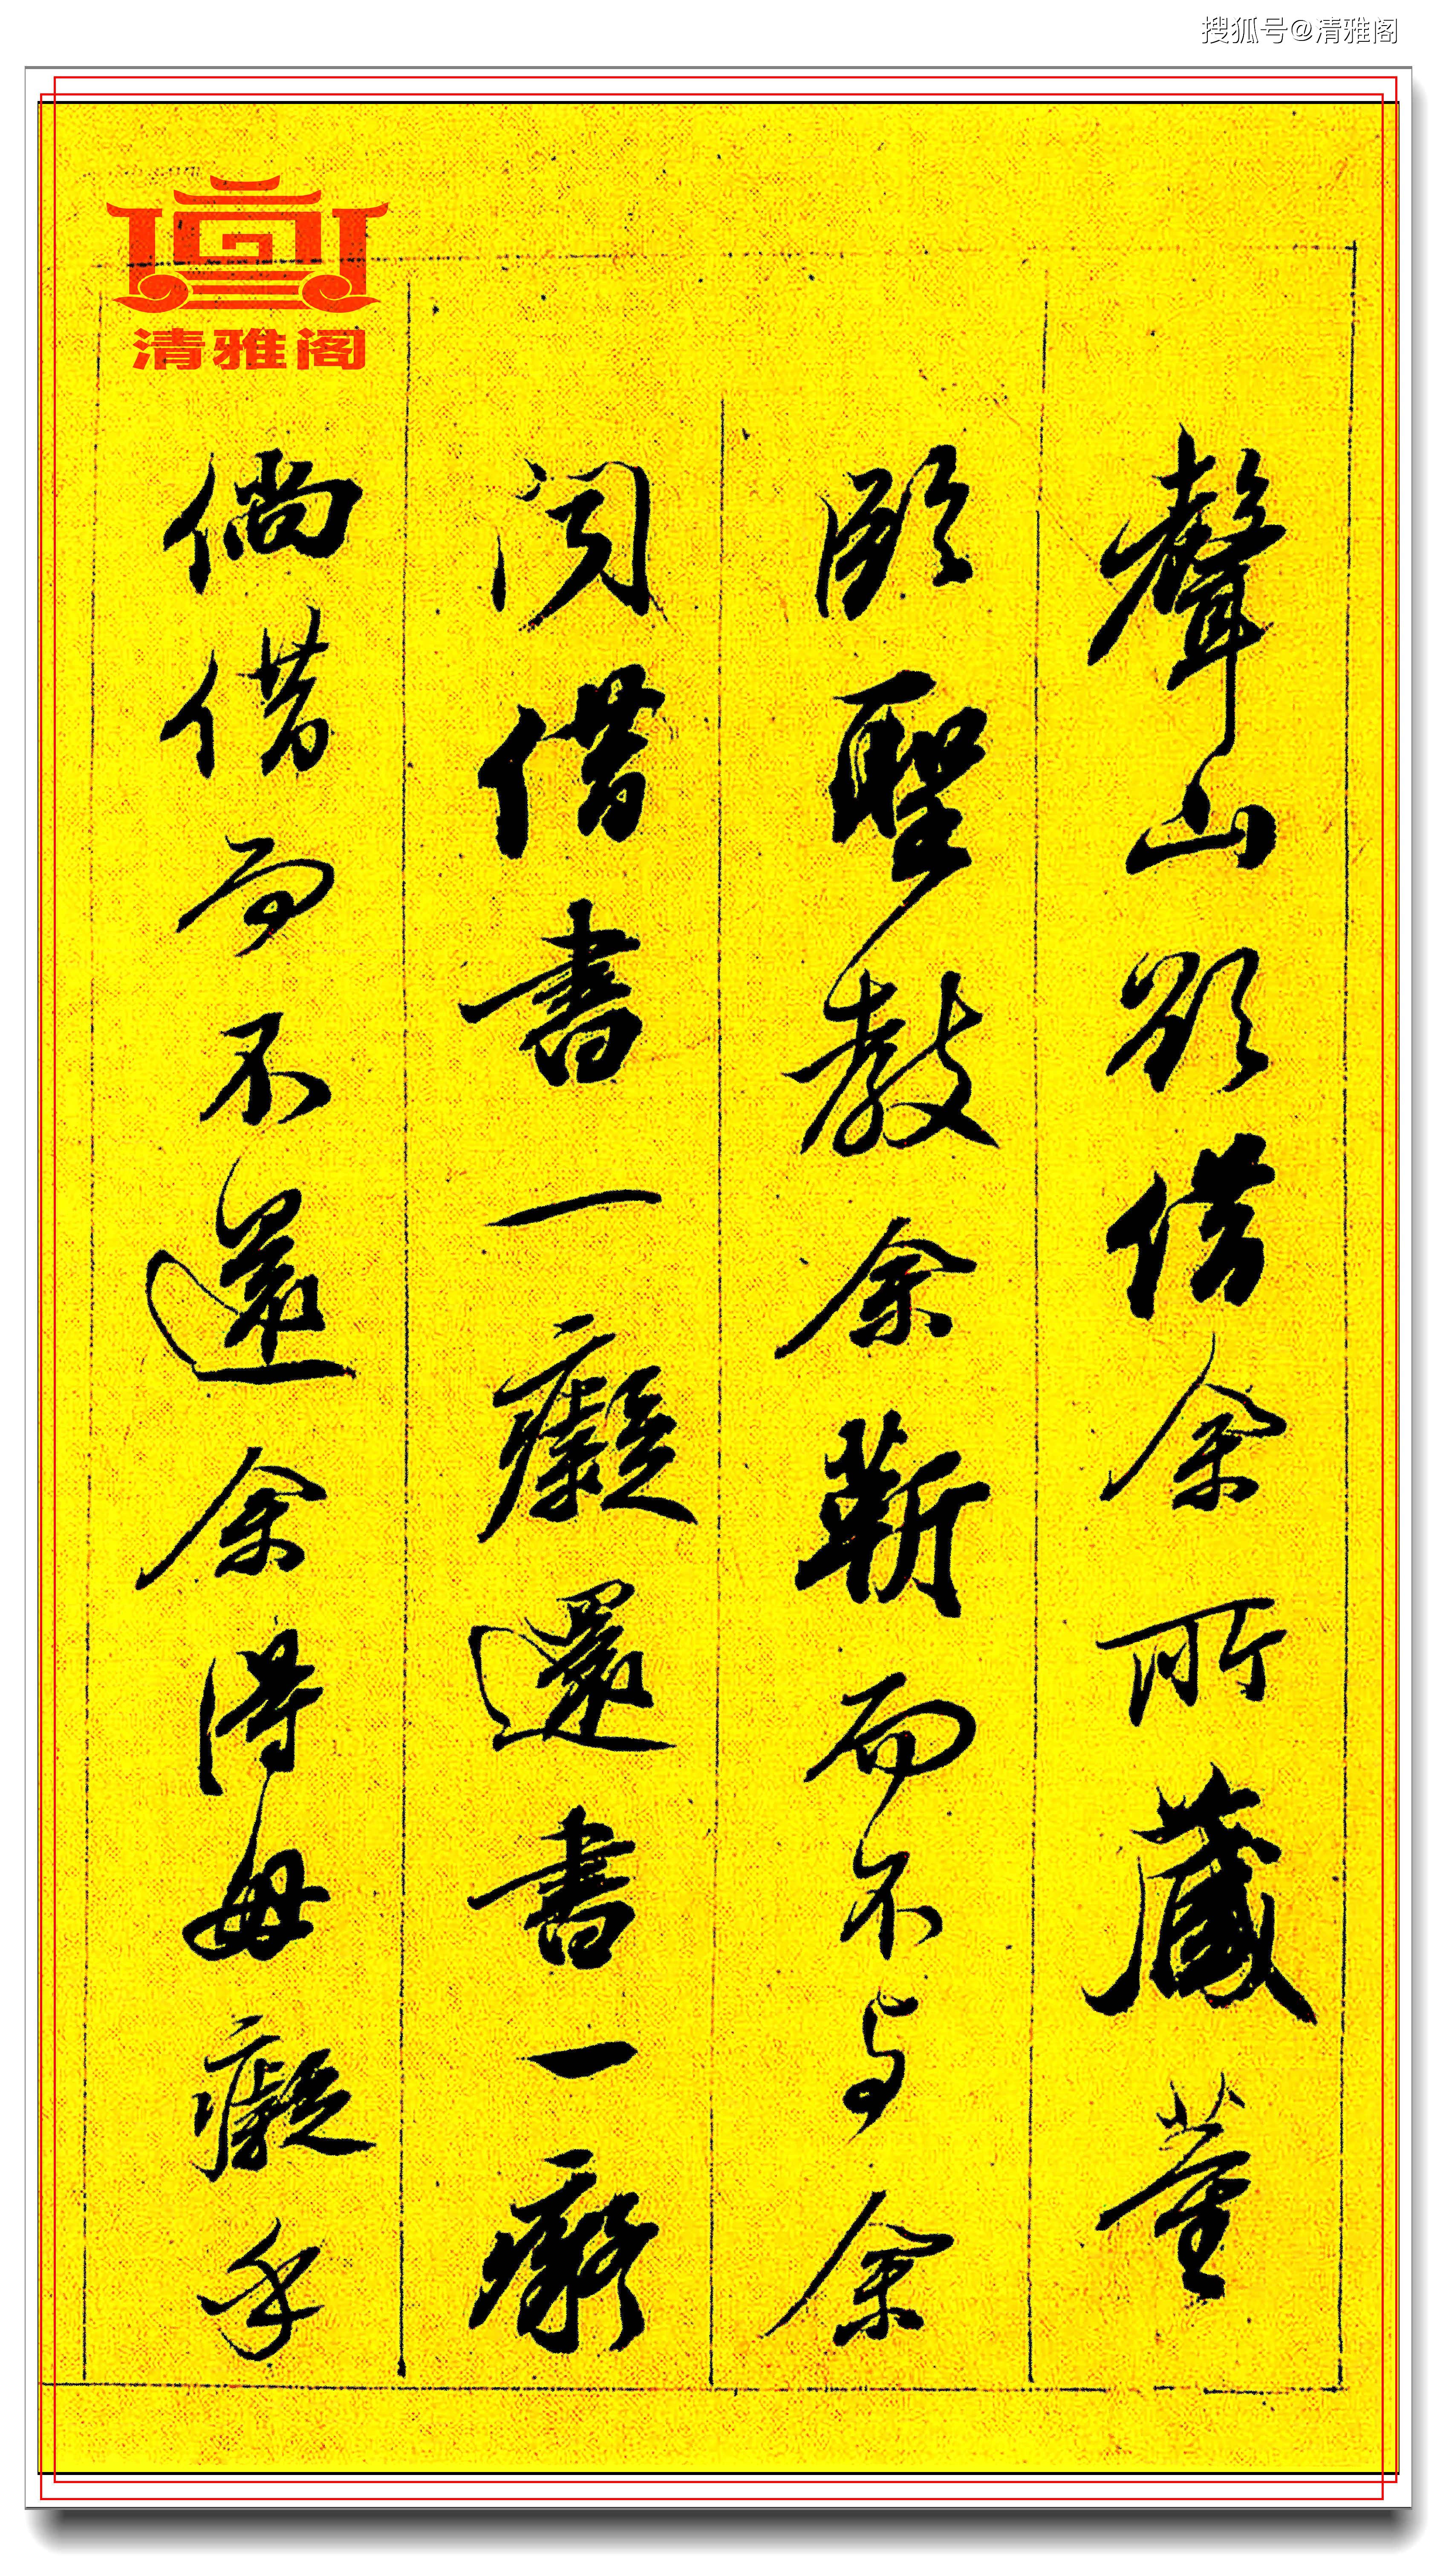 搜狐号@清雅阁
清雅阁
聲山欲借余所藏董
臨聖教余靳而不与余
聞借書一癡還書一癡
倘借而不還余得毋癡乎